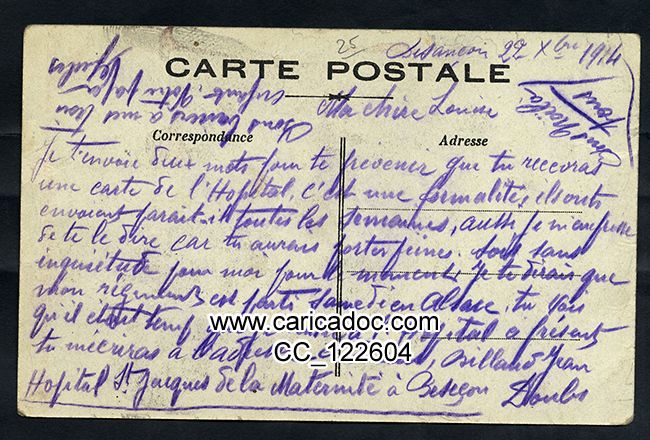 25
Besançon 22 Xbre 1914
CARTE POSTALE
Ma chère Louise
Correspondance
Adresse
Je t'envoie deux mots pour te prevenir que tu recevras
une carte de l'Hopital, c'est une formalité, ils onts
envoient parait-il toutes les semaines, aussi je m'empresse
de te le dire car tu aurais porter peine. Sois sans
inquiétude pour moi pour le moment, je te dirais que
mon régiment est parti samedi en Alsace, tu vois
qu'il etait temp l'hopital a present
tu m'ecriras à l'adresse Billaud Jean
Hopital St Jacques de la Maternité à Besançon Doubs
Bons baisers a mes trois
enfants, Votre papa
tous
www.caricadoc.com
CC_122604